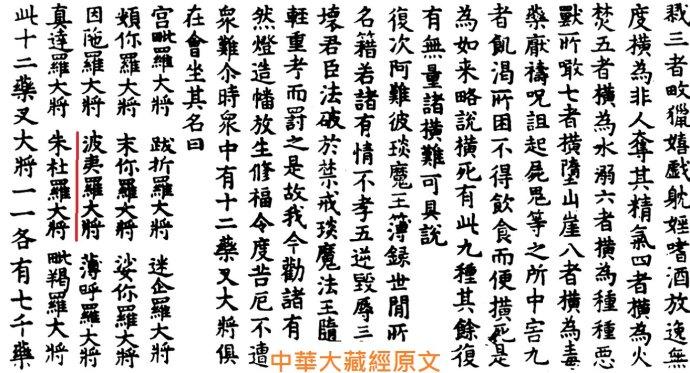 戮三者畋獵嬉戲躭婬嗜酒放逸無
度橫為非人奪其精氣四者橫為火
焚五者橫為水溺六者橫為種種惡
獸所噉七者橫墮山崖八者橫為毒
藥厭禱呪詛起屍鬼等之所中害九
者飢渴所困不得飲食而便橫死是
為如来略說橫死有此九種其餘復
有無量諸橫難可具說
復次阿難彼琰魔王簿錄世間所
名籍若諸有情不孝五逆毀辱三
壞君臣法破於禁戒琰魔法王隨
輕重考而罰之是故我今勸諸有
然燈造幡放生修福令度苦厄不遭
衆難尒時衆中有十二藥叉大將俱
在會坐其名曰
宮毗羅大將 跋折羅大將 迷企羅大將
頞你羅大將 末你羅大將 娑你羅大將
因陁羅大將 波夷羅大將 薄呼羅大將
真達羅大將 朱杜羅大將 毗羯羅大將
此十二藥叉大將一一各有七千藥
中華大藏經原文